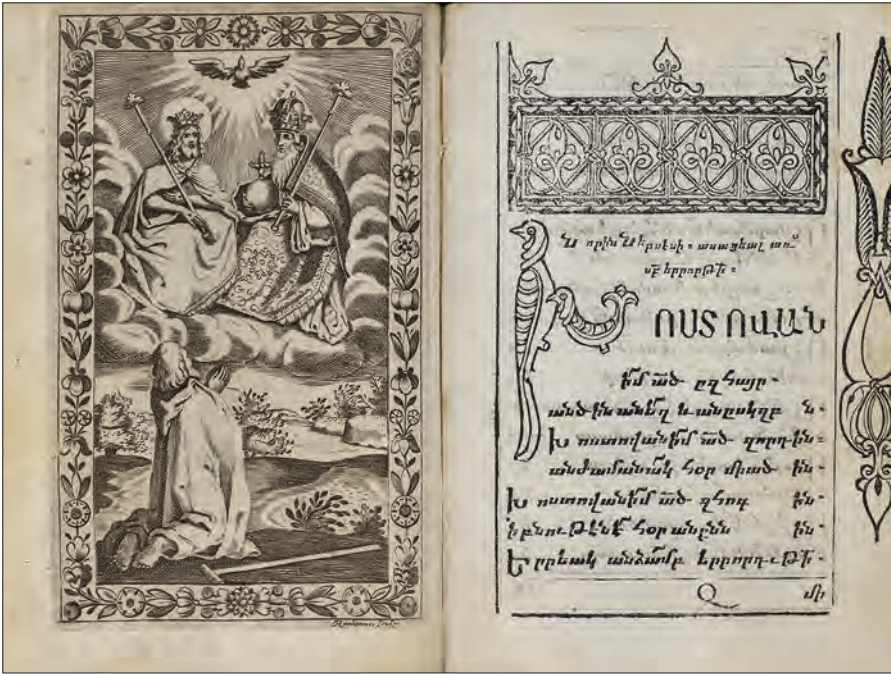 Նորին Ներսէսի ։ ասացեալ առ՟
սբ՟ երրորթի՟ ։
ԽՈՍՏՈՎԱՆ
իմ ած՟ ըզհայր ֊
անծին անեղ և անըսկզբն ֊
Խոստովանիմ ած՟ զորդին ֊
անժամանակ հօր միածին ֊
Խոստովանիմ ած՟ զհոգին ֊
ի բնութէնէ՟ հօր անքննին ֊
Երրեակ անձամբ երրորդւթի՟ ֊
մի